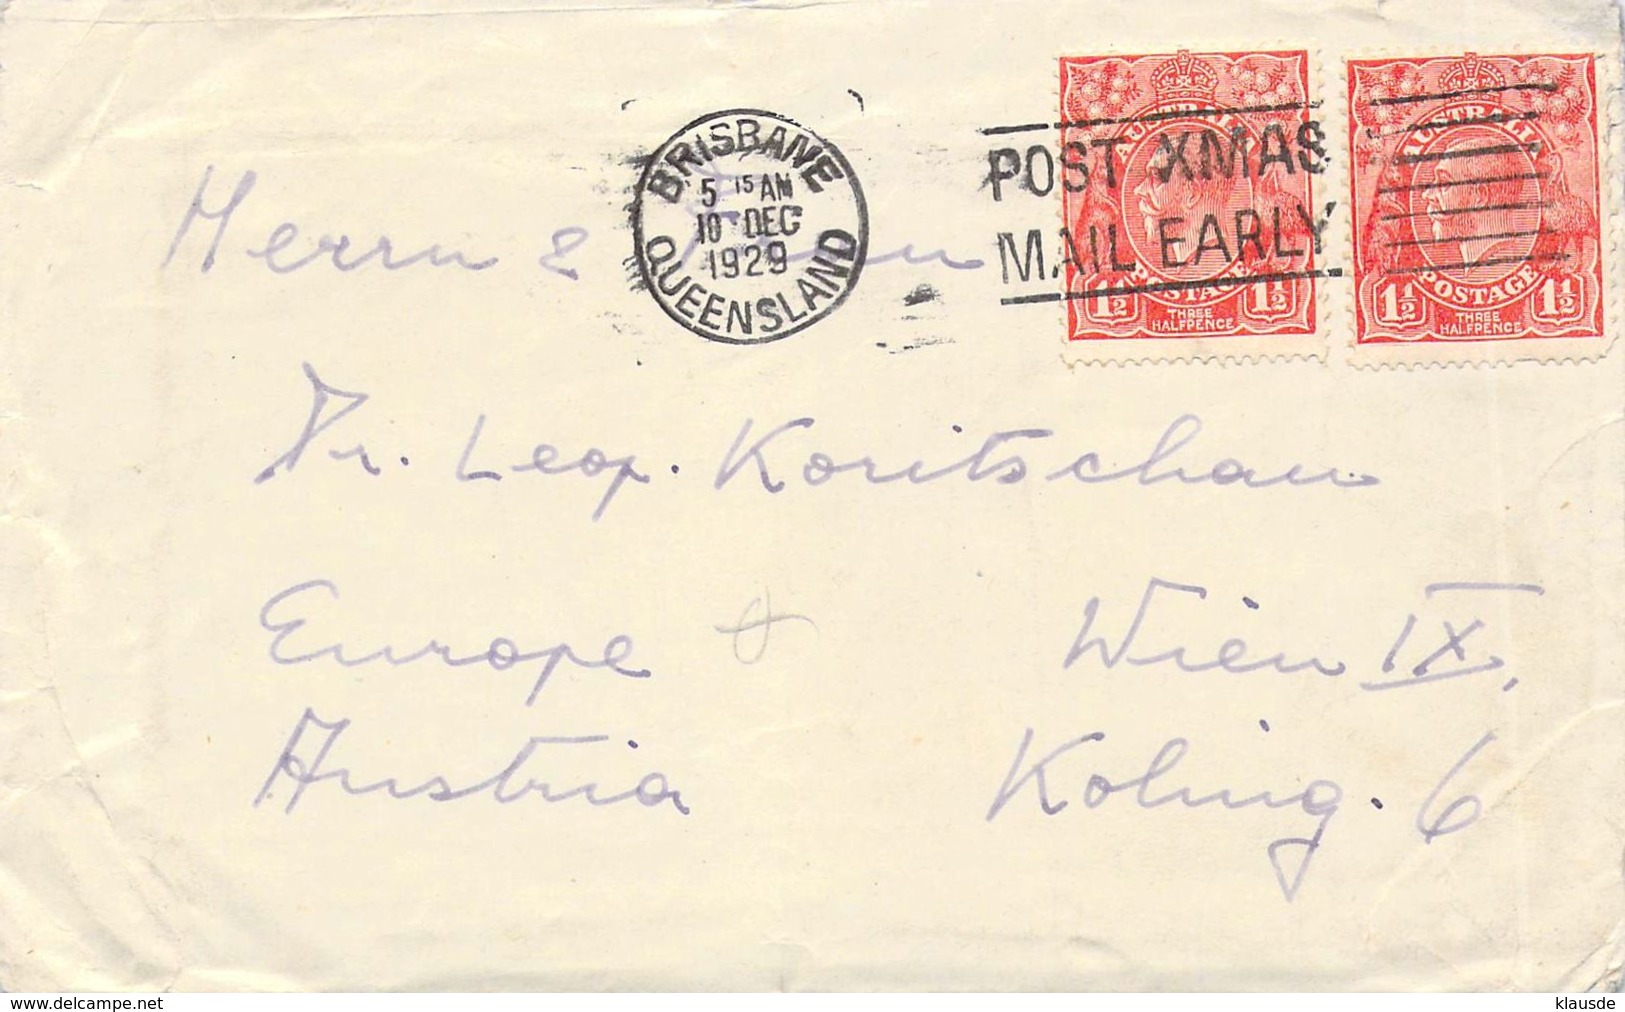 BRISBANE
5 15 AM
10 DEC
1929
QUEENSLAND
POST XMAS
MAIL EARLY
AUSTRALIA
POSTAGE
1½ 1½
THREE
HALFPENCE
AUSTRALIA
POSTAGE
1½ 1½
THREE
HALFPENCE
Herrn &
Dr. Leop. Koritschau
Europe Wien IX,
Austria Koling. 6
www.delcampe.net
klausde